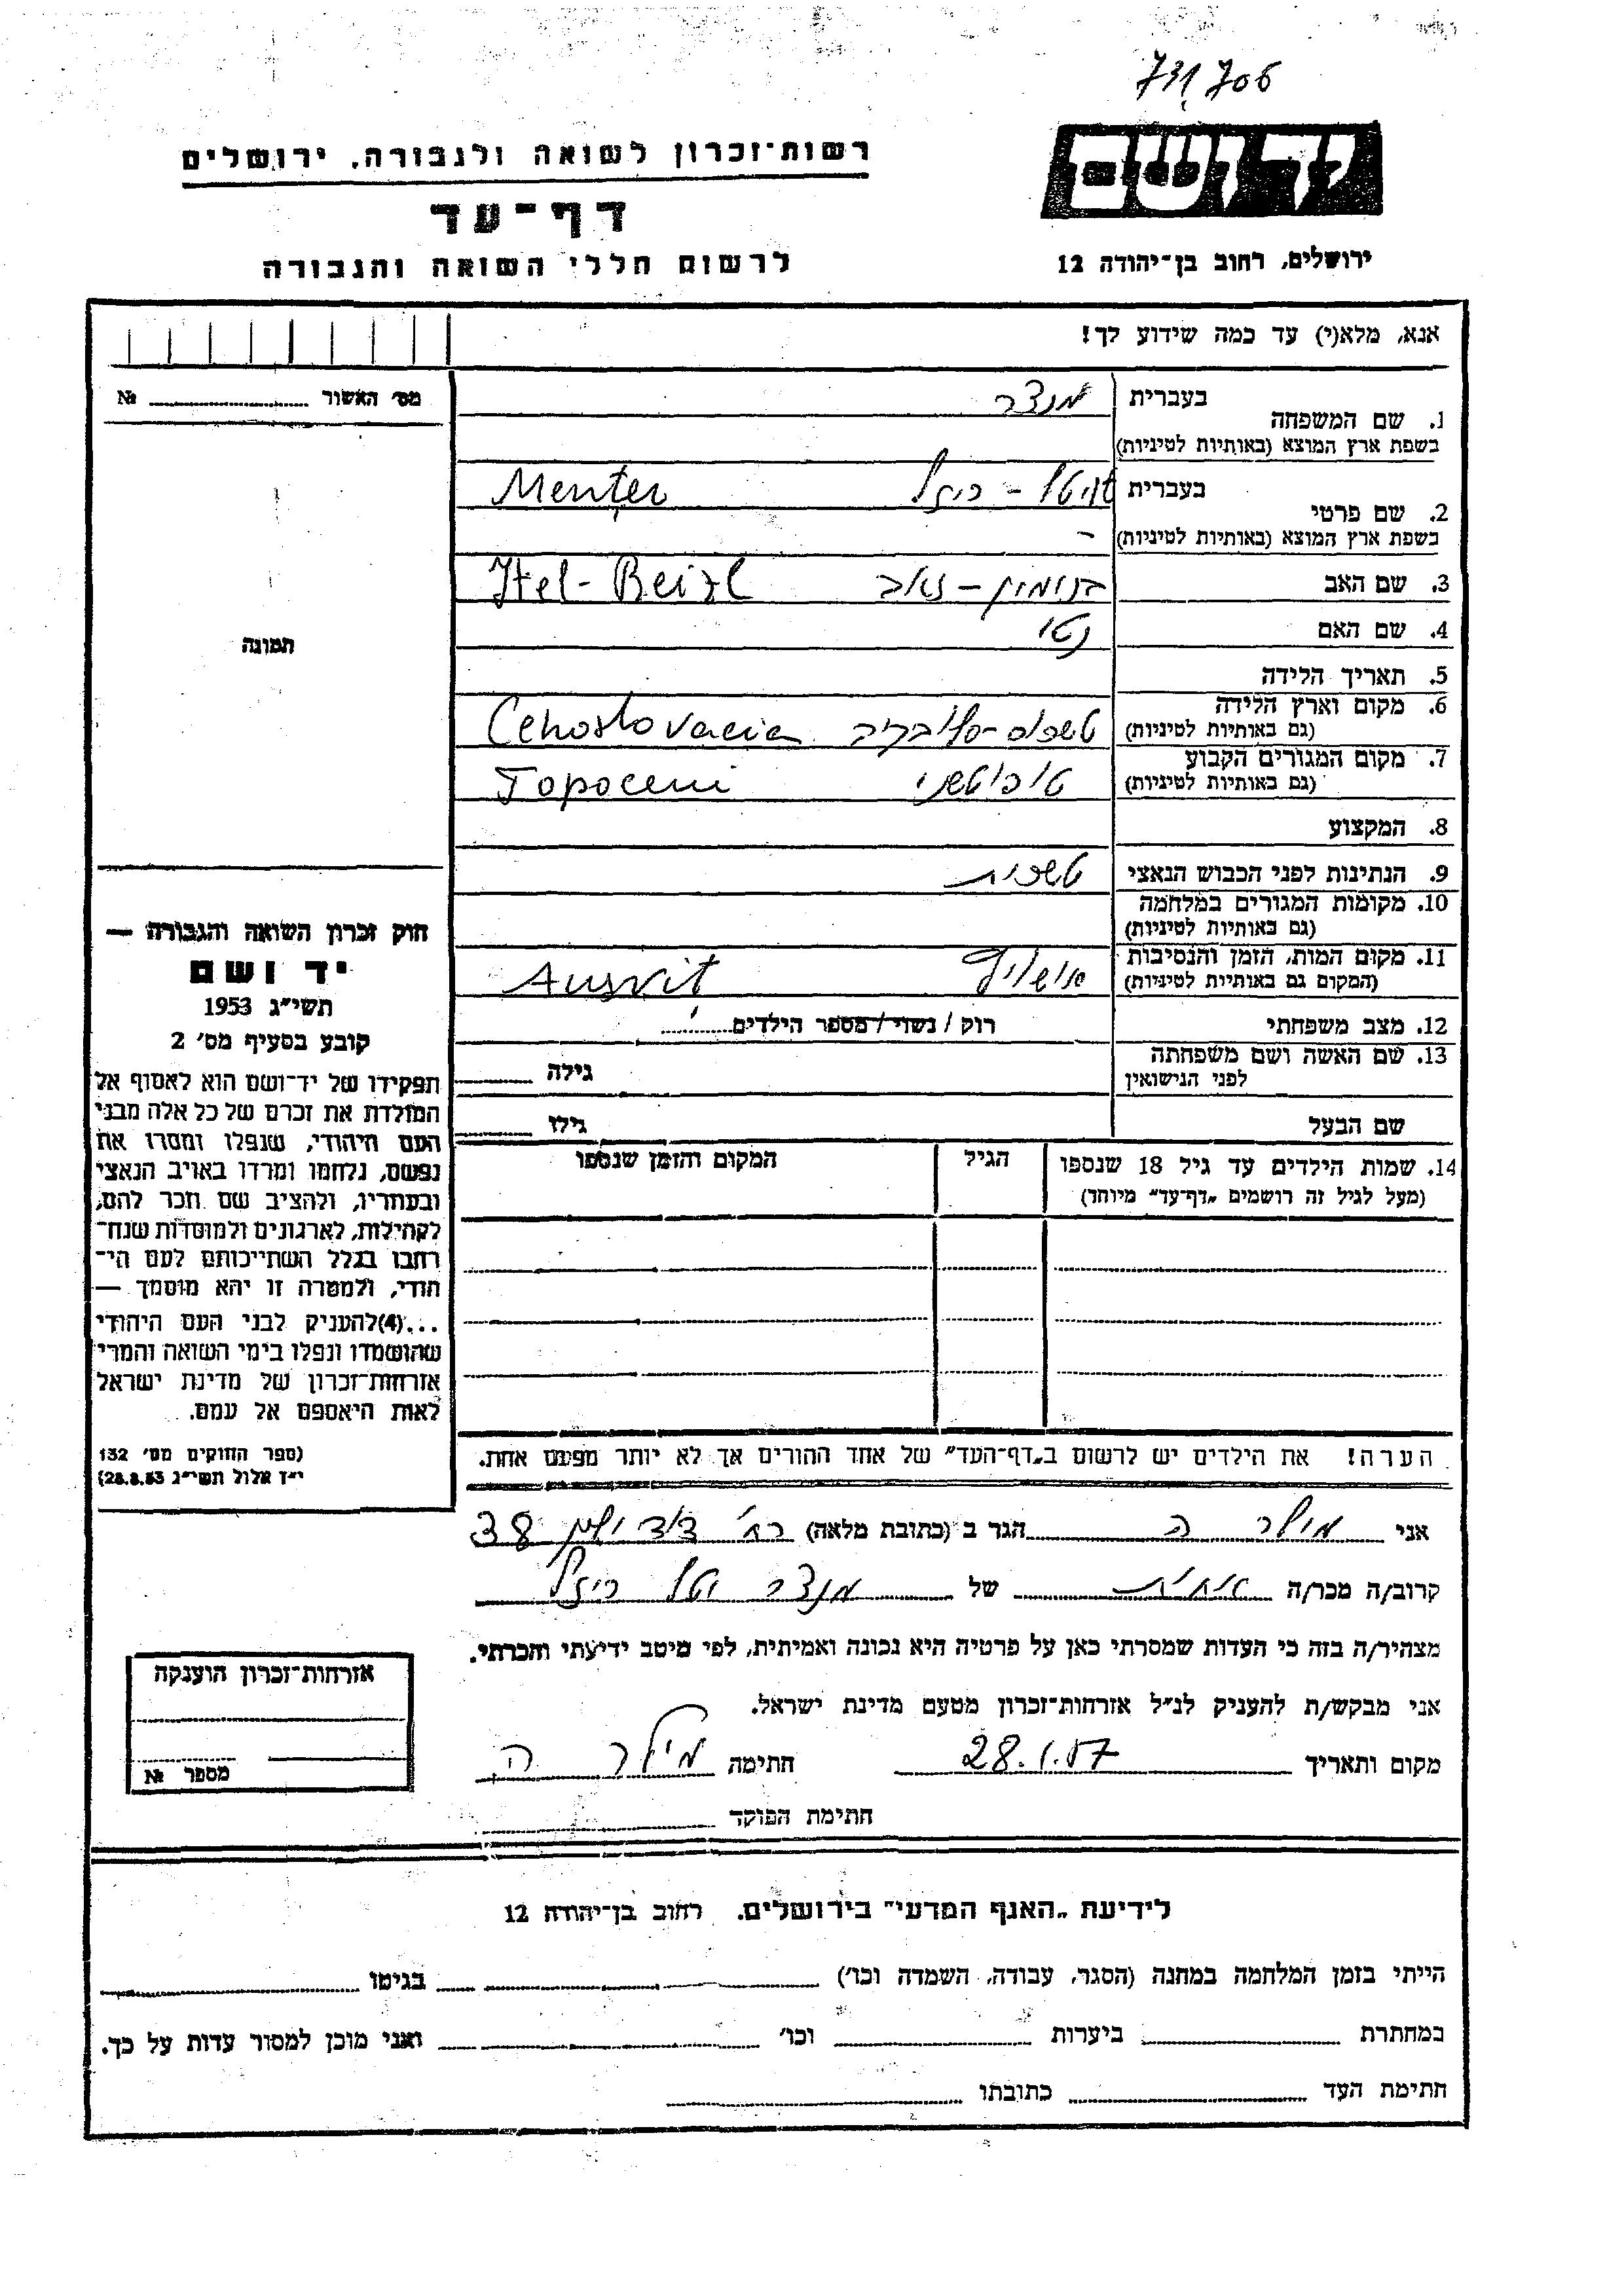 731706
רשות־זכרון לשואה ולגבורה, ירושלים
יד ושם
דף־עד
לרשום חללי השואה והגבורה
ירושלים, רחוב בן־יהודה 12
אנא, מלא(י) עד כמה שידוע לך!
מס׳ האשור № 
1. שם המשפחה בעברית מנצר
בשפת ארץ המוצא (באותיות לטיניות)
Menter
2. שם פרטי בעברית איטל - ביזל
בשפת ארץ המוצא (באותיות לטיניות) -
Itel-Beizl
3. שם האב בנימין - זאב
4. שם האם נטי
תמונה
5. תאריך הלידה
6. מקום וארץ הלידה
(גם באותיות לטיניות) Cehoslovacia
7. מקום המגורים הקבוע
(גם באותיות לטיניות) טופוטשני Topoceni
8. המקצוע
9. הנתינות לפני הכבוש הנאצי טשכית
10. מקומות המגורים במלחמה
(גם באותיות לטיניות)
11. מקום המות, הזמן והנסיבות
(המקום גם באותיות לטיניות) אושויץ Ausvit
12. מצב משפחתי רוק / נשוי / מספר הילדים
13. שם האשה ושם משפחתה
לפני הנישואין גילה
שם הבעל גילו
14. שמות הילדים עד גיל 18 שנספו הגיל המקום והזמן שנספו
(מעל לגיל זה רושמים „דף־עד״ מיוחד)
חוק זכרון השואה והגבורה —
יד ושם
תשי״ג 1953
קובע בסעיף מס׳ 2
תפקידו של יד־ושם הוא לאסוף אל
המולדת את זכרם של כל אלה מבני
העם היהודי, שנפלו ומסרו את
נפשם, נלחמו ומרדו באויב הנאצי
ובעוזריו, ולהציב שם וזכר להם,
לקהילות, לארגונים ולמוסדות שנח־
רבו בגלל השתייכותם לעם הי־
הודי, ולמטרה זו יהא מוסמך —
...(4) להעניק לבני העם היהודי
שהושמדו ונפלו בימי השואה והמרי
אזרחות־זכרון של מדינת ישראל
לאות היאספם אל עמם.
(ספר החוקים מס׳ 132
י״ז אלול תשי״ג 28.8.53)
הערה! את הילדים יש לרשום ב„דף־העד״ של אחד ההורים אך לא יותר מפעם אחת.
אני מילר ה הגר ב (כתובת מלאה) רח׳ 38
קרוב/ה מכר/ה של מנצר יטל ביזל
מצהיר/ה בזה כי העדות שמסרתי כאן על פרטיה היא נכונה ואמיתית, לפי מיטב ידיעתי והכרתי.
אני מבקש/ת להעניק לנ״ל אזרחות־זכרון מטעם מדינת ישראל.
מקום ותאריך 28.1.57 חתימה מילר ה
חתימת הפוקד
אזרחות־זכרון הוענקה
מספר №
לידיעת „האגף המדעי״ בירושלים. רחוב בן־יהודה 12
הייתי בזמן המלחמה במחנה (הסגר, עבודה, השמדה וכו׳) בגיטו
במחתרת ביערות וכו׳ ואני מוכן למסור עדות על כך.
חתימת העד כתובתו